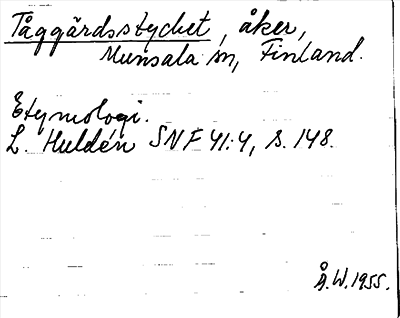 Tåggärdsstycket, åker,
Munsala sn, Finland.
Etymologi.
L. Huldén SNF 41:4, s. 148.
Å.W.1955.